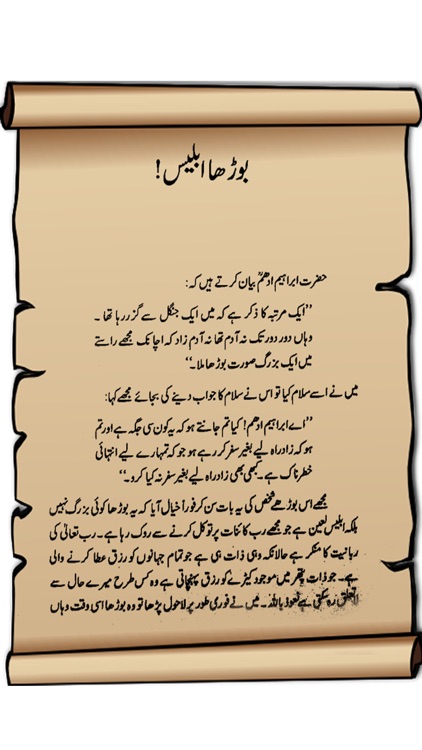 بوڑھا ابلیس!
حضرت ابراہیم ادھمؒ بیان کرتے ہیں کہ:
’’ایک مرتبہ کا ذکر ہے کہ میں ایک جنگل سے گزر رہا تھا ۔
وہاں دور دور تک نہ آدم تھا نہ آدم زاد کہ اچانک مجھے راستے
میں ایک بزرگ صورت بوڑھا ملا۔‘‘
میں نے اسے سلام کیا تو اس نے سلام کا جواب دینے کی بجائے مجھے کہا:
’’اے ابراہیم ادھم! کیا تم جانتے ہو کہ یہ کون سی جگہ ہے اور تم
ہو کہ زادراہ لیے بغیر سفر کر رہے ہو جو کہ تمہارے لیے انتہائی
خطرناک ہے۔ کبھی بھی زادراہ لیے بغیر سفر نہ کیا کرو۔‘‘
مجھے اس بوڑھے شخص کی یہ بات سن کر فوراً خیال آیا کہ یہ بوڑھا کوئی بزرگ نہیں
بلکہ ابلیس لعین ہے جو مجھے رب کائنات پر توکل کرنے سے روک رہا ہے۔ رب تعالیٰ کی
ربانیت کا منکر ہے حالانکہ وہی ذات ہی ہے جو تمام جہانوں کو رزق عطا کرنے والی
ہے۔ جو ذات پتھر میں موجود کیڑے کو رزق پہنچاتی ہے وہ کس طرح میرے حال سے
لاتعلق رہ سکتی ہے نعوذ باللہ۔ میں نے فوری طور پر لاحول پڑھا تو وہ بوڑھا اسی وقت وہاں